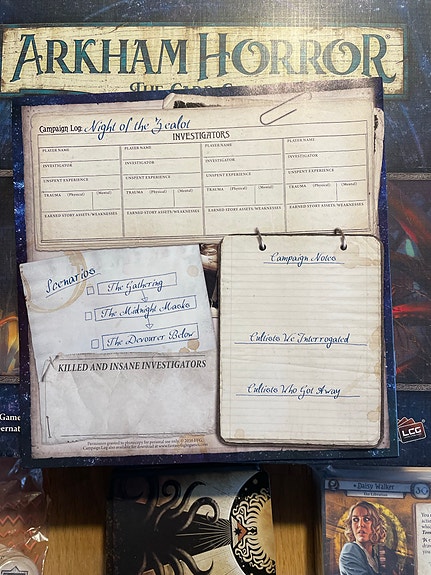 ARKHAM HORROR®
Campaign Log: Night of the Zealot
INVESTIGATORS
PLAYER NAME PLAYER NAME PLAYER NAME PLAYER NAME
INVESTIGATOR INVESTIGATOR INVESTIGATOR INVESTIGATOR
UNSPENT EXPERIENCE UNSPENT EXPERIENCE UNSPENT EXPERIENCE UNSPENT EXPERIENCE
TRAUMA (Physical) (Mental) TRAUMA (Physical) (Mental) TRAUMA (Physical) (Mental) TRAUMA (Physical) (Mental)
EARNED STORY ASSETS/WEAKNESSES EARNED STORY ASSETS/WEAKNESSES EARNED STORY ASSETS/WEAKNESSES EARNED STORY ASSETS/WEAKNESSES
Scenarios
The Gathering
The Midnight Masks
The Devourer Below
KILLED AND INSANE INVESTIGATORS
Campaign Notes
Cultists We Interrogated
Cultists Who Got Away
Permission granted to photocopy for personal use only. © 2016 FFG
Campaign Log also available for download at www.fantasyflightgames.com
Game
LCG
Daisy Walker
The Librarian